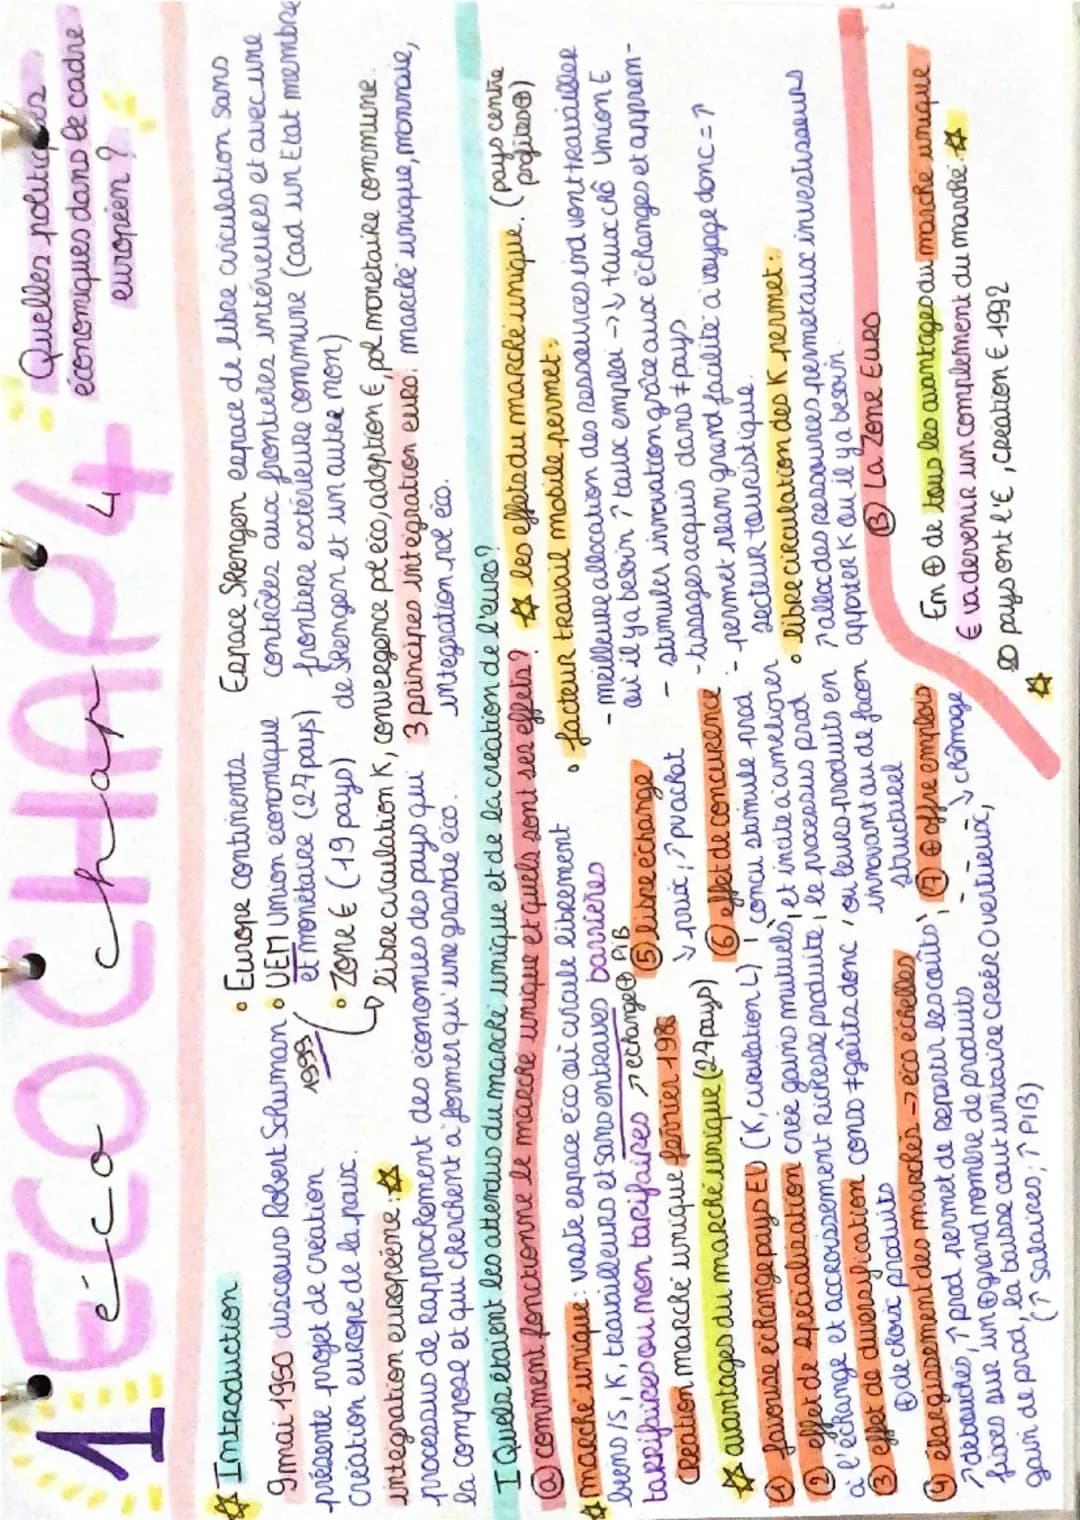 1 ECO CHAP 4
éco chap 4
Quelles politiques
économiques dans le cadre
européen ?
Introduction
9 mai 1950 discours Robert Schuman
présente projet de création
création europe de la paix.
intégration européenne :
processus de rapprochement des économies des pays qui
la compose et qui cherchent à former qu'une grande éco.
• Europe continents
• UEM Union économique
et monétaire (27 pays)
1999
• Zone € (19 pays)
↳ libre circulation K, convergence pol éco, adoption €, pol monétaire commune.
Espace Skengen espace de libre circulation sans
contrôles aux frontières intérieures et avec une
frontière extérieure commune (cad un Etat membre
de Skengen et un autre non)
3 principes intégration euro : marché unique, monnaie,
intégration pol éco.
I Quels étaient les attendus du marché unique et de la création de l'euro?
a) comment fonctionne le marché unique et quels sont ses effets?
marché unique : vaste espace éco où circule librement
biens/S, K, travailleurs et sans entraves barrières
tarrifaires ou non tarifaires ↗ échange ⊕ PIB
Création marché unique février 1986
avantages du marché unique (27 pays)
① favorise échange pays EU (K, circulation L)
② effet de spécialisation crée gains mutuels
à l'échange et accroissement richesse produite
③ effet de diversification conso ≠ goûts donc
⊕ de choix produits
④ élargissement des marchés → éco échelles
↗ débouchés, ↑ prod permet de répartir les coûts
fixes sur un ⊕ grand nombre de produits
gain de prod, la baisse coût unitaire créée O vertueux,
(↑ salaires ; ↑ PIB)
⑤ libre échange
↓ prix, ↗ pv achat
⑥ effet de concurence
concu stimule prod
et incite à améliorer
le processus prod
ou leurs produits en
innovant ou de facon
structurel
⑦ ⊕ offre emplois
↓ chômage
les effets du marché unique. (pays centre
profites ⊕)
• facteur travail mobile permet :
- meilleure allocation des ressources ind vont travailler
où il y a besoin ↗ taux emploi → ↓ taux chô Union E
- stimuler innovation grâce aux échanges et apprem-
-tissages acquis dans ≠ pays
- permet sean grand failité à voyage donc = ↗
secteur touristique.
• libre circulation des K permet :
↗ alloc des ressources, permet aux investisseurs
apporter K où il y a besoin.
B) La Zone Euro
En ⊕ de tous les avantages du marché unique
€ va devenir un complement du marché.
20 pays ont l'€, création € 1992